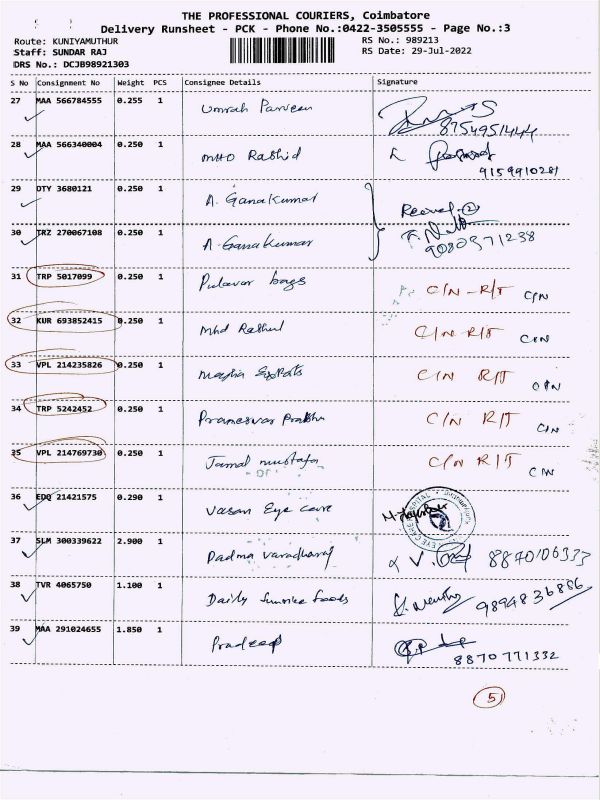 THE PROFESSIONAL COURIERS, Coimbatore
Delivery Runsheet - PCK - Phone No.:0422-3505555 - Page No.:3
Route: KUNIYAMUTHUR RS No.: 989213
Staff: SUNDAR RAJ RS Date: 29-Jul-2022
DRS No.: DCJB98921303
S No Consignment No Weight PCS Consignee Details Signature
27 MAA 566784555 0.255 1 Umrah Parveen 8754951444
28 MAA 566340004 0.250 1 MHD Rashid 9159910281
29 OTY 3680121 0.250 1 A. Ganakumar
30 TRZ 270067108 0.250 1 A. Ganakumar 9080371238
31 TRP 5017099 0.250 1 Pulavar bags C/N - R/T C/N
32 KUR 693852415 0.250 1 Mhd Rashid C/N - R/T C/N
33 VPL 214235826 0.250 1 Exports C/N R/T C/N
34 TRP 5242452 0.250 1 Prameswar Prabhu C/N R/T C/N
35 VPL 214769730 0.250 1 Jamal mustafa C/N R/T C/N
36 EDQ 21421575 0.290 1 Vasan Eye care
37 SLM 300339622 2.900 1 Padma Varadharaj 8870106333
38 TVR 4065750 1.100 1 Daily Sunrise foods 9894836886
39 MAA 291024655 1.850 1 Pradeep 8870771332
5